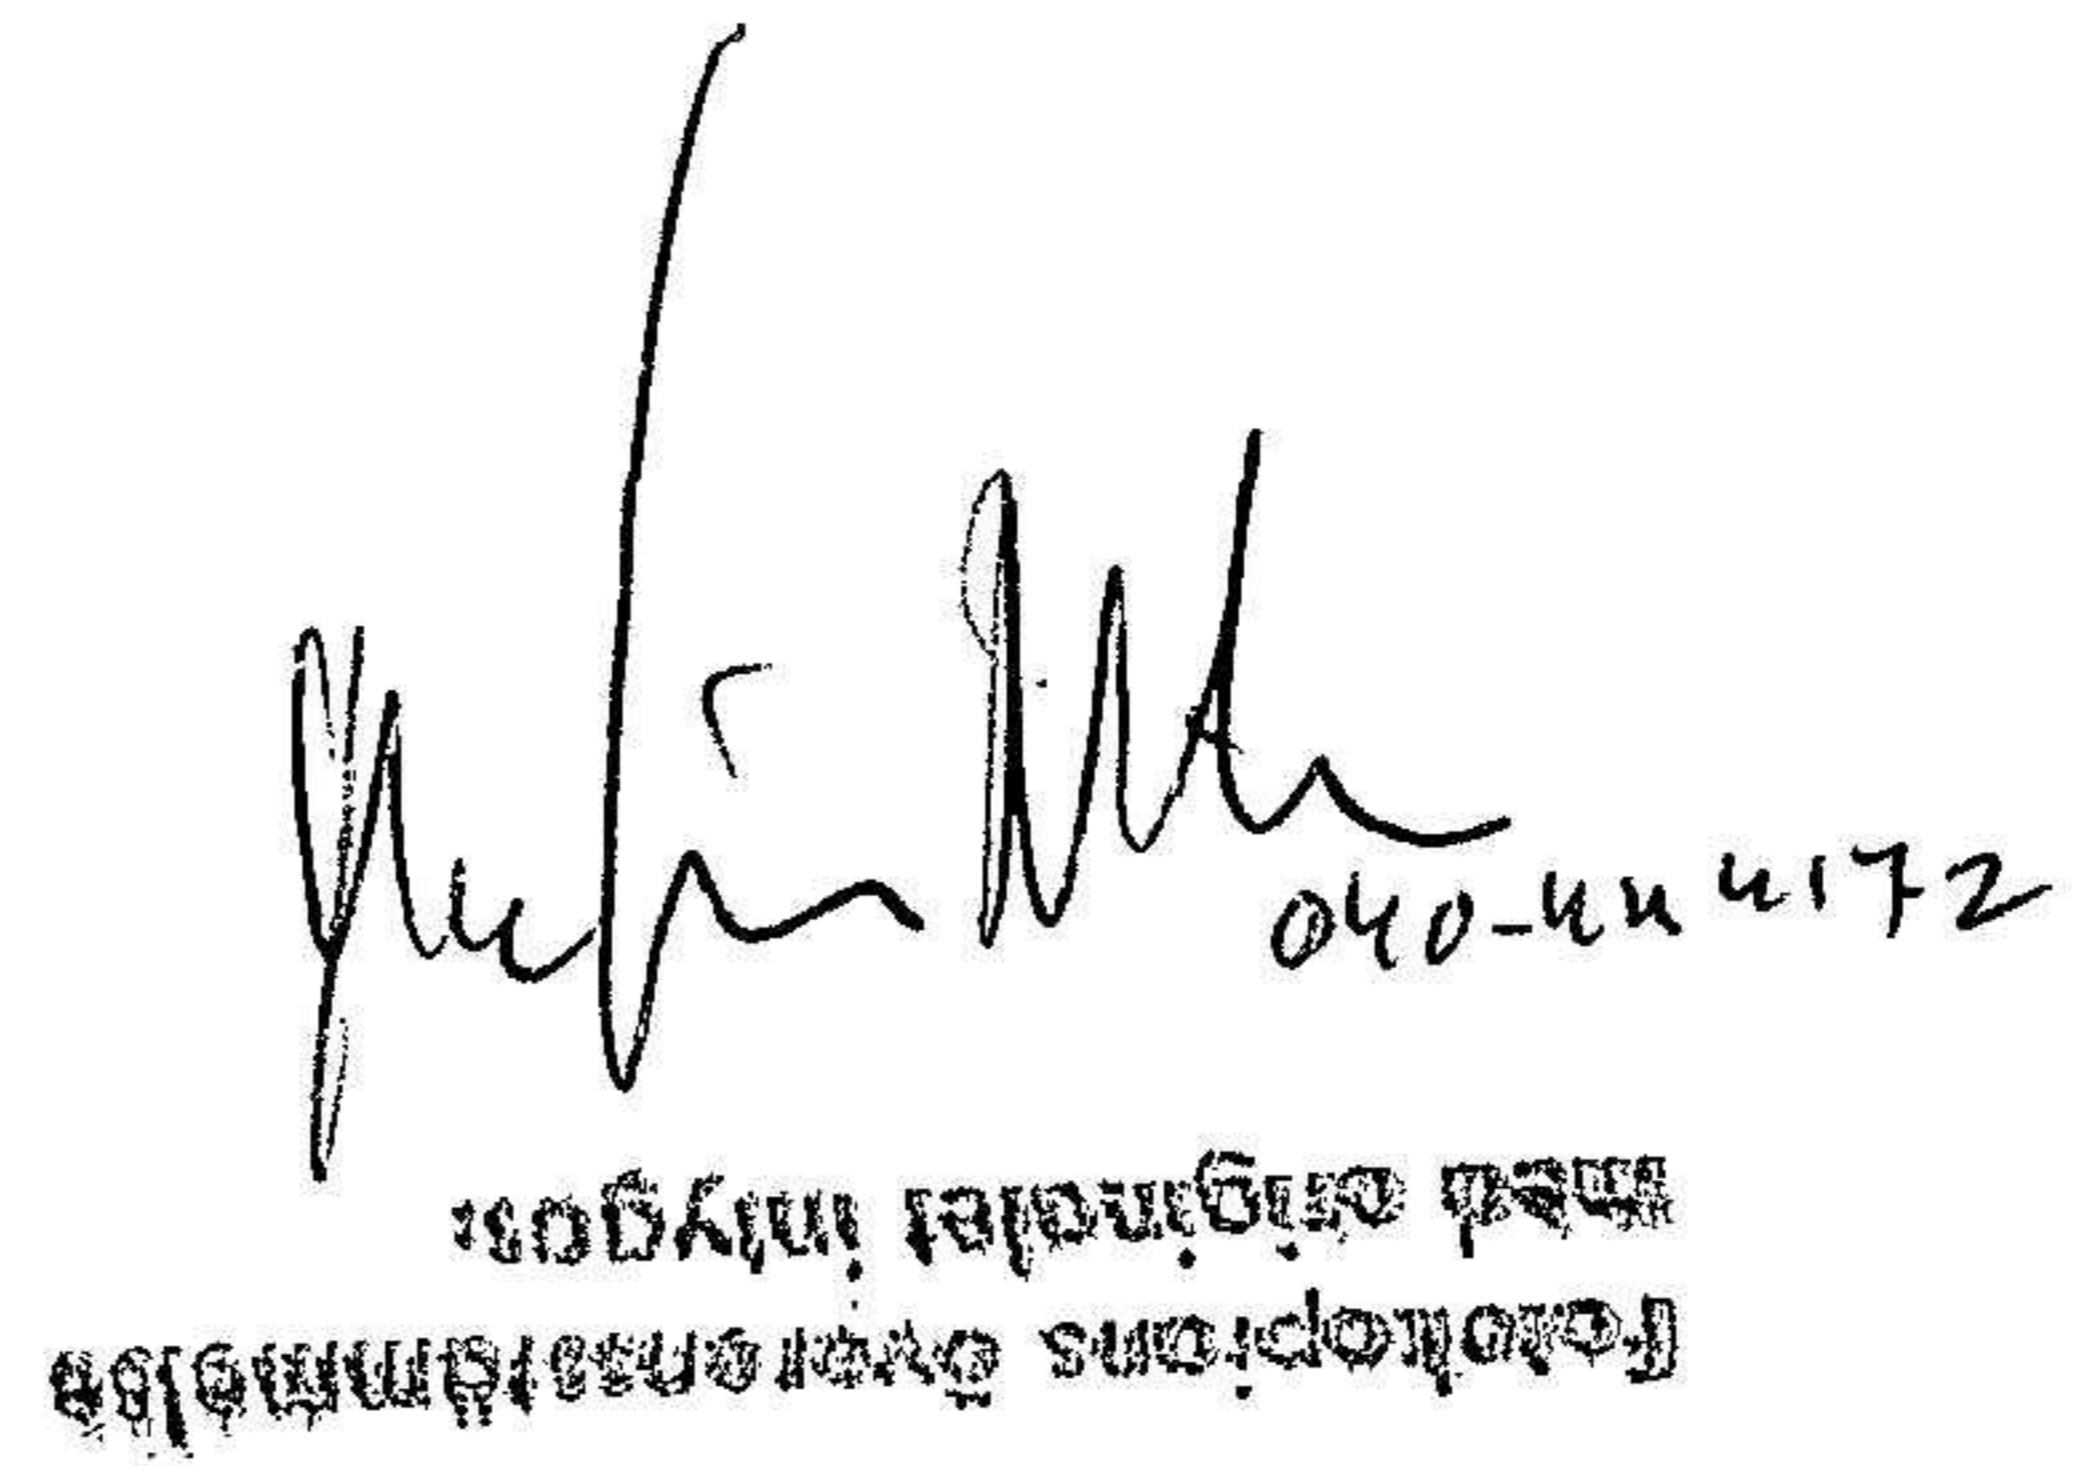 040-44 4172
Fotokopians överensstämmelse
med originalet intygas: